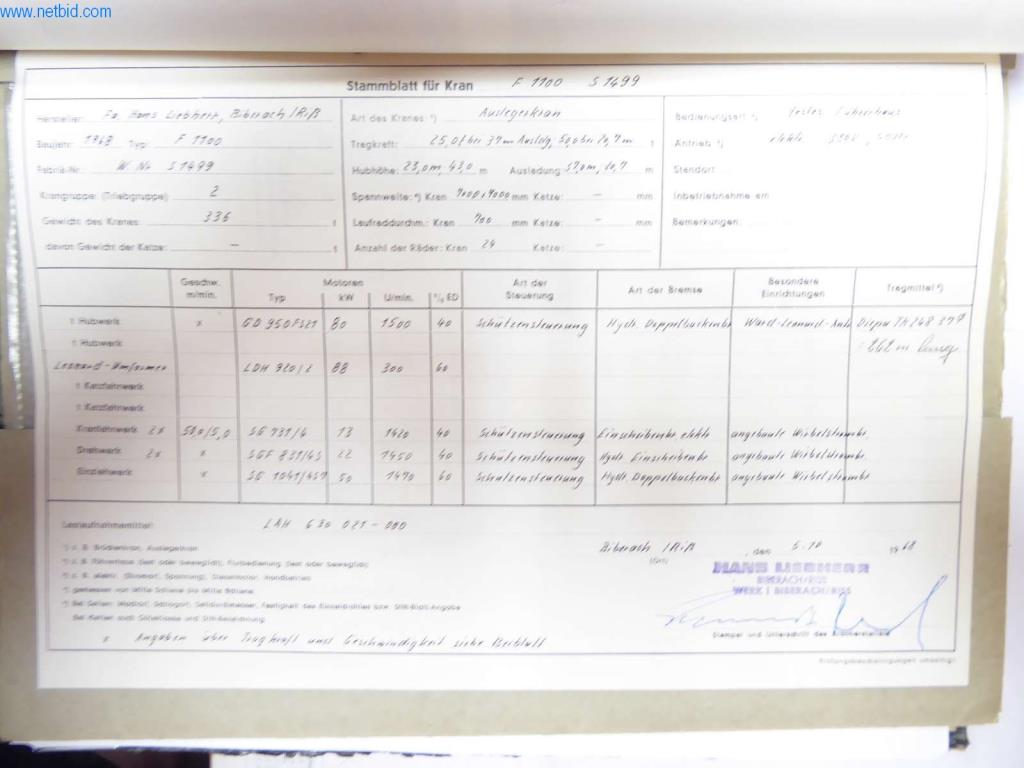 www.netbid.com
Stammblatt für Kran F 1100 S 1499
Hersteller: Fa. Hans Liebherr, Biberach/Riß
Baujahr: 1968 Typ: F 1100
Fabrik-Nr.: W. Nr. S 1499
Krangruppe (Triebgruppe): 2
Gewicht des Kranes: 336 t
davon Gewicht der Katze: – t
Art des Kranes ¹) Auslegerkran
Tragkraft: 25,0 t bei 37m Ausldg; 50,0 bei 20,7 m t
Hubhöhe: 23,0m; 43,0 m Ausladung: 37,0m, 20,7 m
Spannweite: ⁴) Kran 7000x7000 mm Katze: – mm
Laufraddurchm.: Kran 700 mm Katze: – mm
Anzahl der Räder: Kran 24 Katze: –
Bedienungsart ²) festes Führerhaus
Antrieb ³) elektr. 380V, 50Hz
Standort:
Inbetriebnahme am
Bemerkungen:
Geschw. m/min. Motoren Typ kW U/min. % ED Art der Steuerung Art der Bremse Besondere Einrichtungen Tragmittel ⁵)
1. Hubwerk x GD 950FS21 80 1500 40 Schützensteuerung Hydr. Doppelbackenbr Ward-Leonard-Antr. Diepa TK 248 37φ
t Hubwerk = 262 m lang
Leonard-Umformer LDH 920/2 88 300 60
t Katzfahrwerk
t Katzfahrwerk
Kranfahrwerk 2x 50,0/5,0 SG 731/6 13 1420 40 Schützensteuerung Einscheibenbr. elektr angebaute Wirbelstrombr.
Drehwerk 2x x SGF 831/4S 22 1450 40 Schützensteuerung Hydr. Einscheibenbr angebaute Wirbelstrombr
Einziehwerk x SG 1041/4S9 50 1470 60 Schützensteuerung Hydr. Doppelbackenbr angebaute Wirbelstrombr
Lastaufnahmemittel: LAH 630 021-000
¹) z. B. Brückenkran, Auslegerkran
²) z. B. Führerhaus (fest oder beweglich), Flurbedienung (fest oder beweglich)
³) z. B. elektr. (Stromart, Spannung), Dieselmotor, Handbetrieb
⁴) gemessen von Mitte Schiene bis Mitte Schiene
⁵) Bei Seilen: Machart, Schlagart, Seildurchmesser, Festigkeit des Einzeldrahtes bzw. DIN-Blatt-Angabe
Bei Ketten auch Gütemasse und DIN-Bezeichnung
x Angaben über Tragkraft und Geschwindigkeit siehe Beiblatt
Biberach /Riß, den 5.10 1968
(Ort)
HANS LIEBHERR
BIBERACH/RISS
WERK I BIBERACH/RISS
Stempel und Unterschrift des
Prüfungsbescheinigungen umseitig!